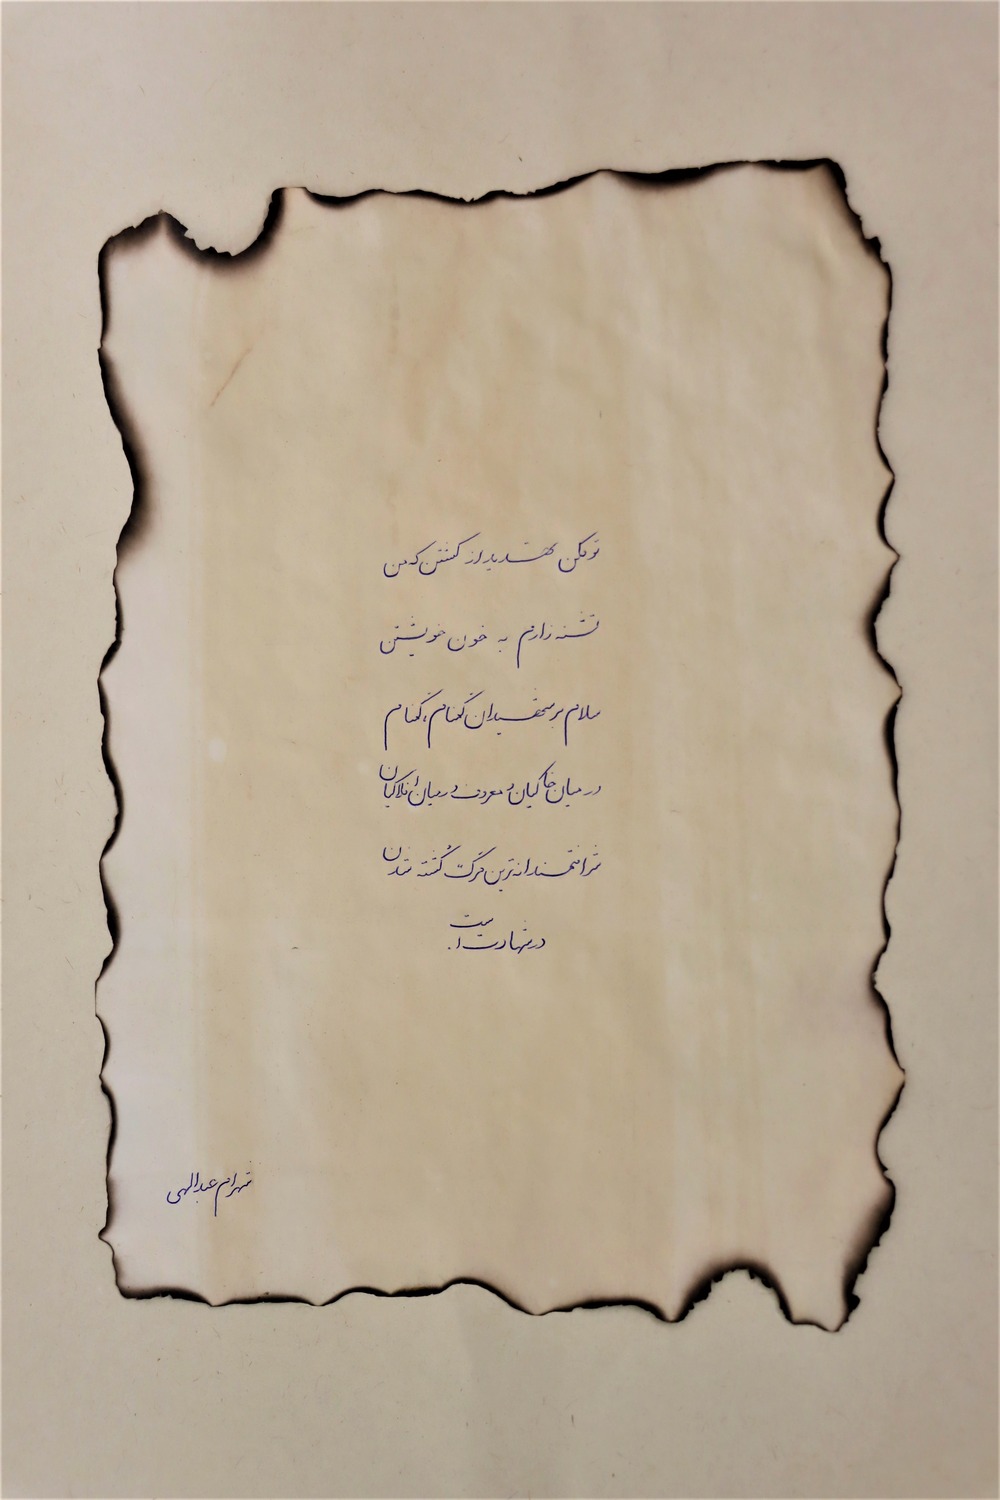 تو مکن تهدید از کشتن که من
تشنه زارم به خون خویشتن
سلام بر شهیدان گمنام، گمنام
در میان خاکیان و معروف در میان افلاکیان
شرافتمندانه ترین مرگ کُشته شدن
در شهادت است.
شهرام عبدالهی